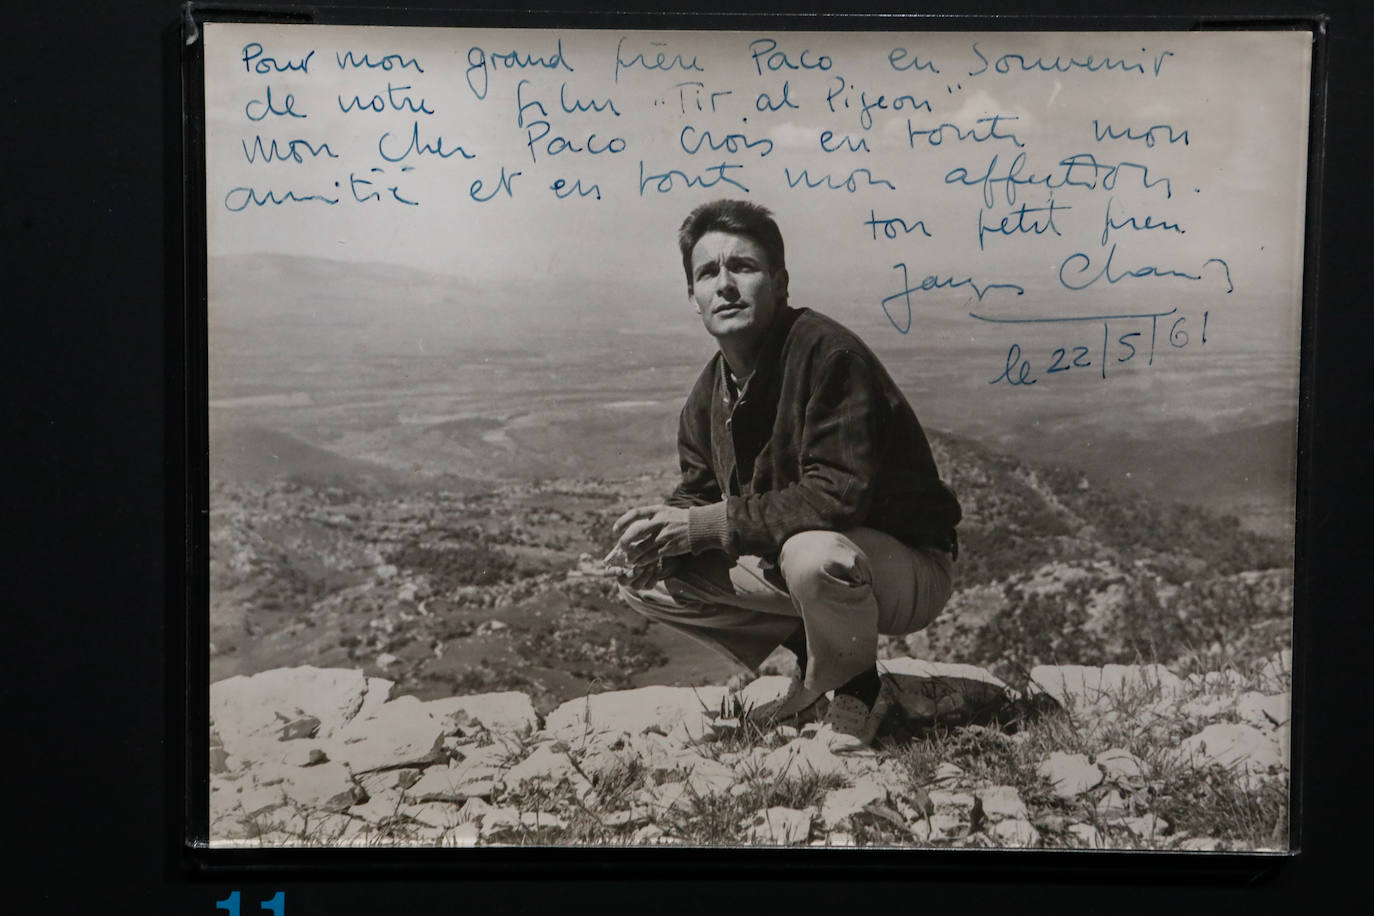 Pour mon grand frère Paco en Souvenir
de notre film "Tir al Pigeon"
mon cher Paco crois en toute mon
amitié et en toute mon affection.
ton petit frère
Jacques
le 22/5/61
11